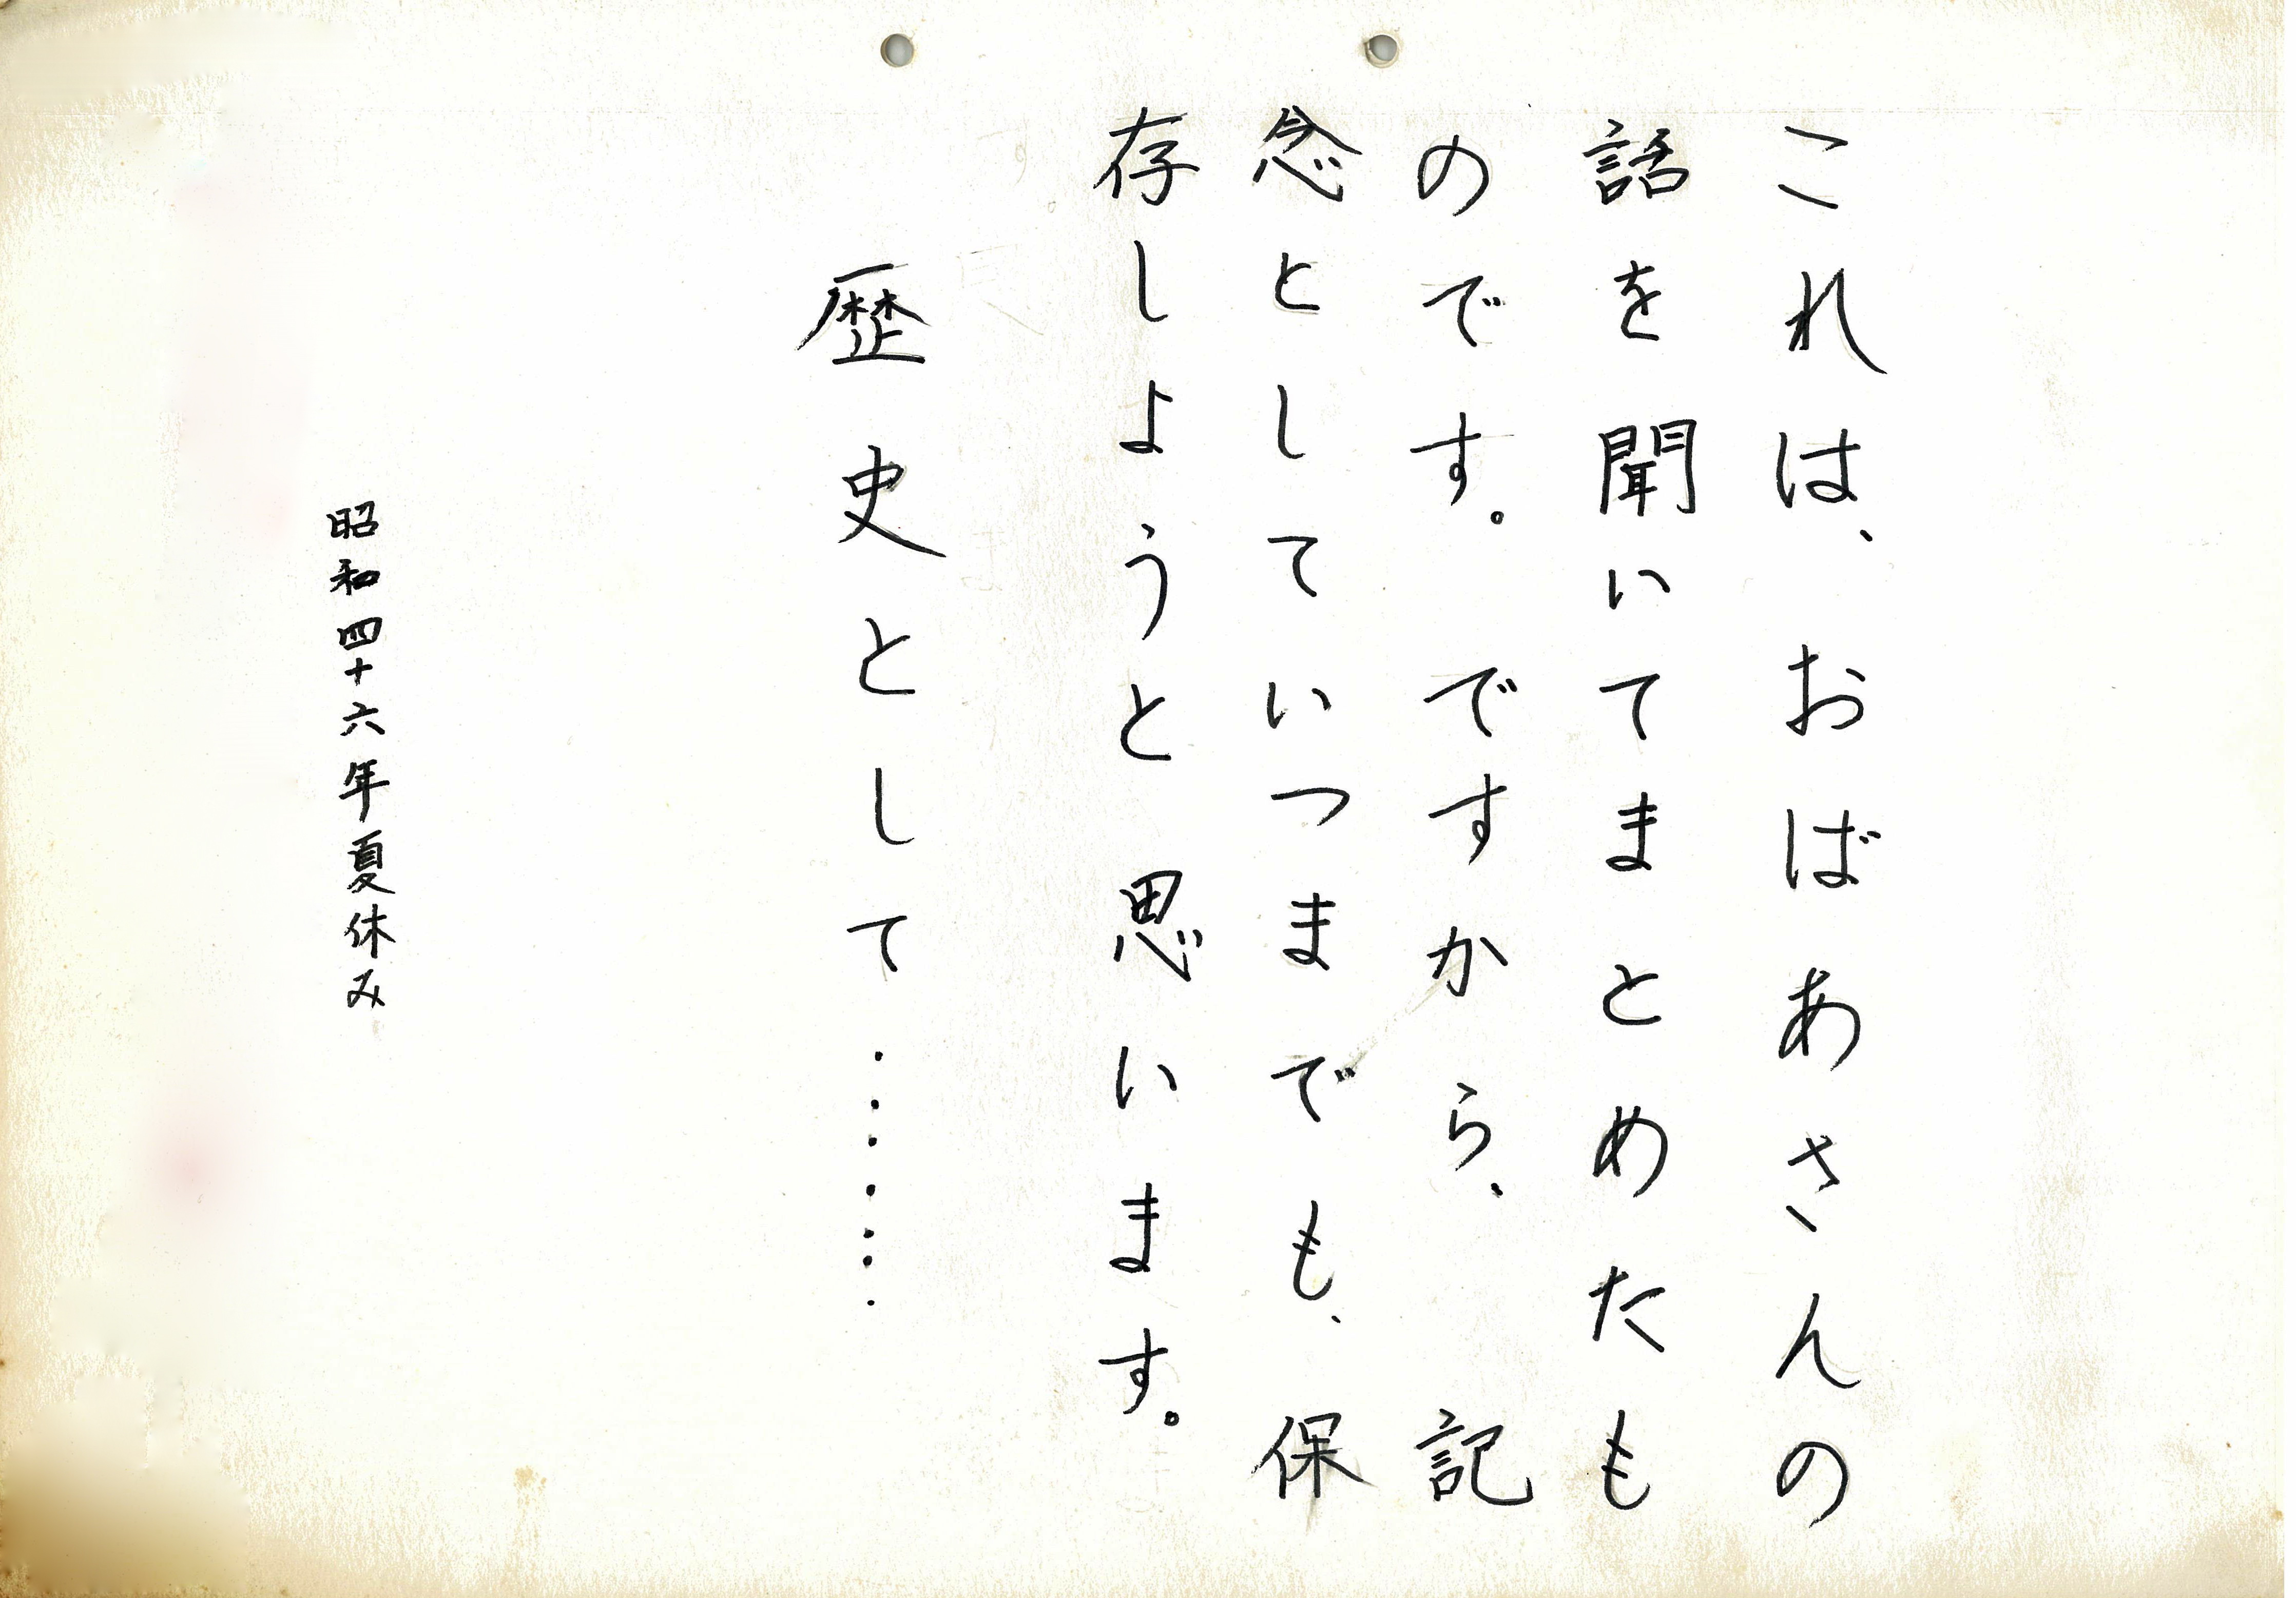 これは、おばあさんの
話を聞いてまとめたも
のです。ですから、記
念としていつまでも、保
存しようと思います。
歴史として・・・・・・・
昭和四十六年夏休み